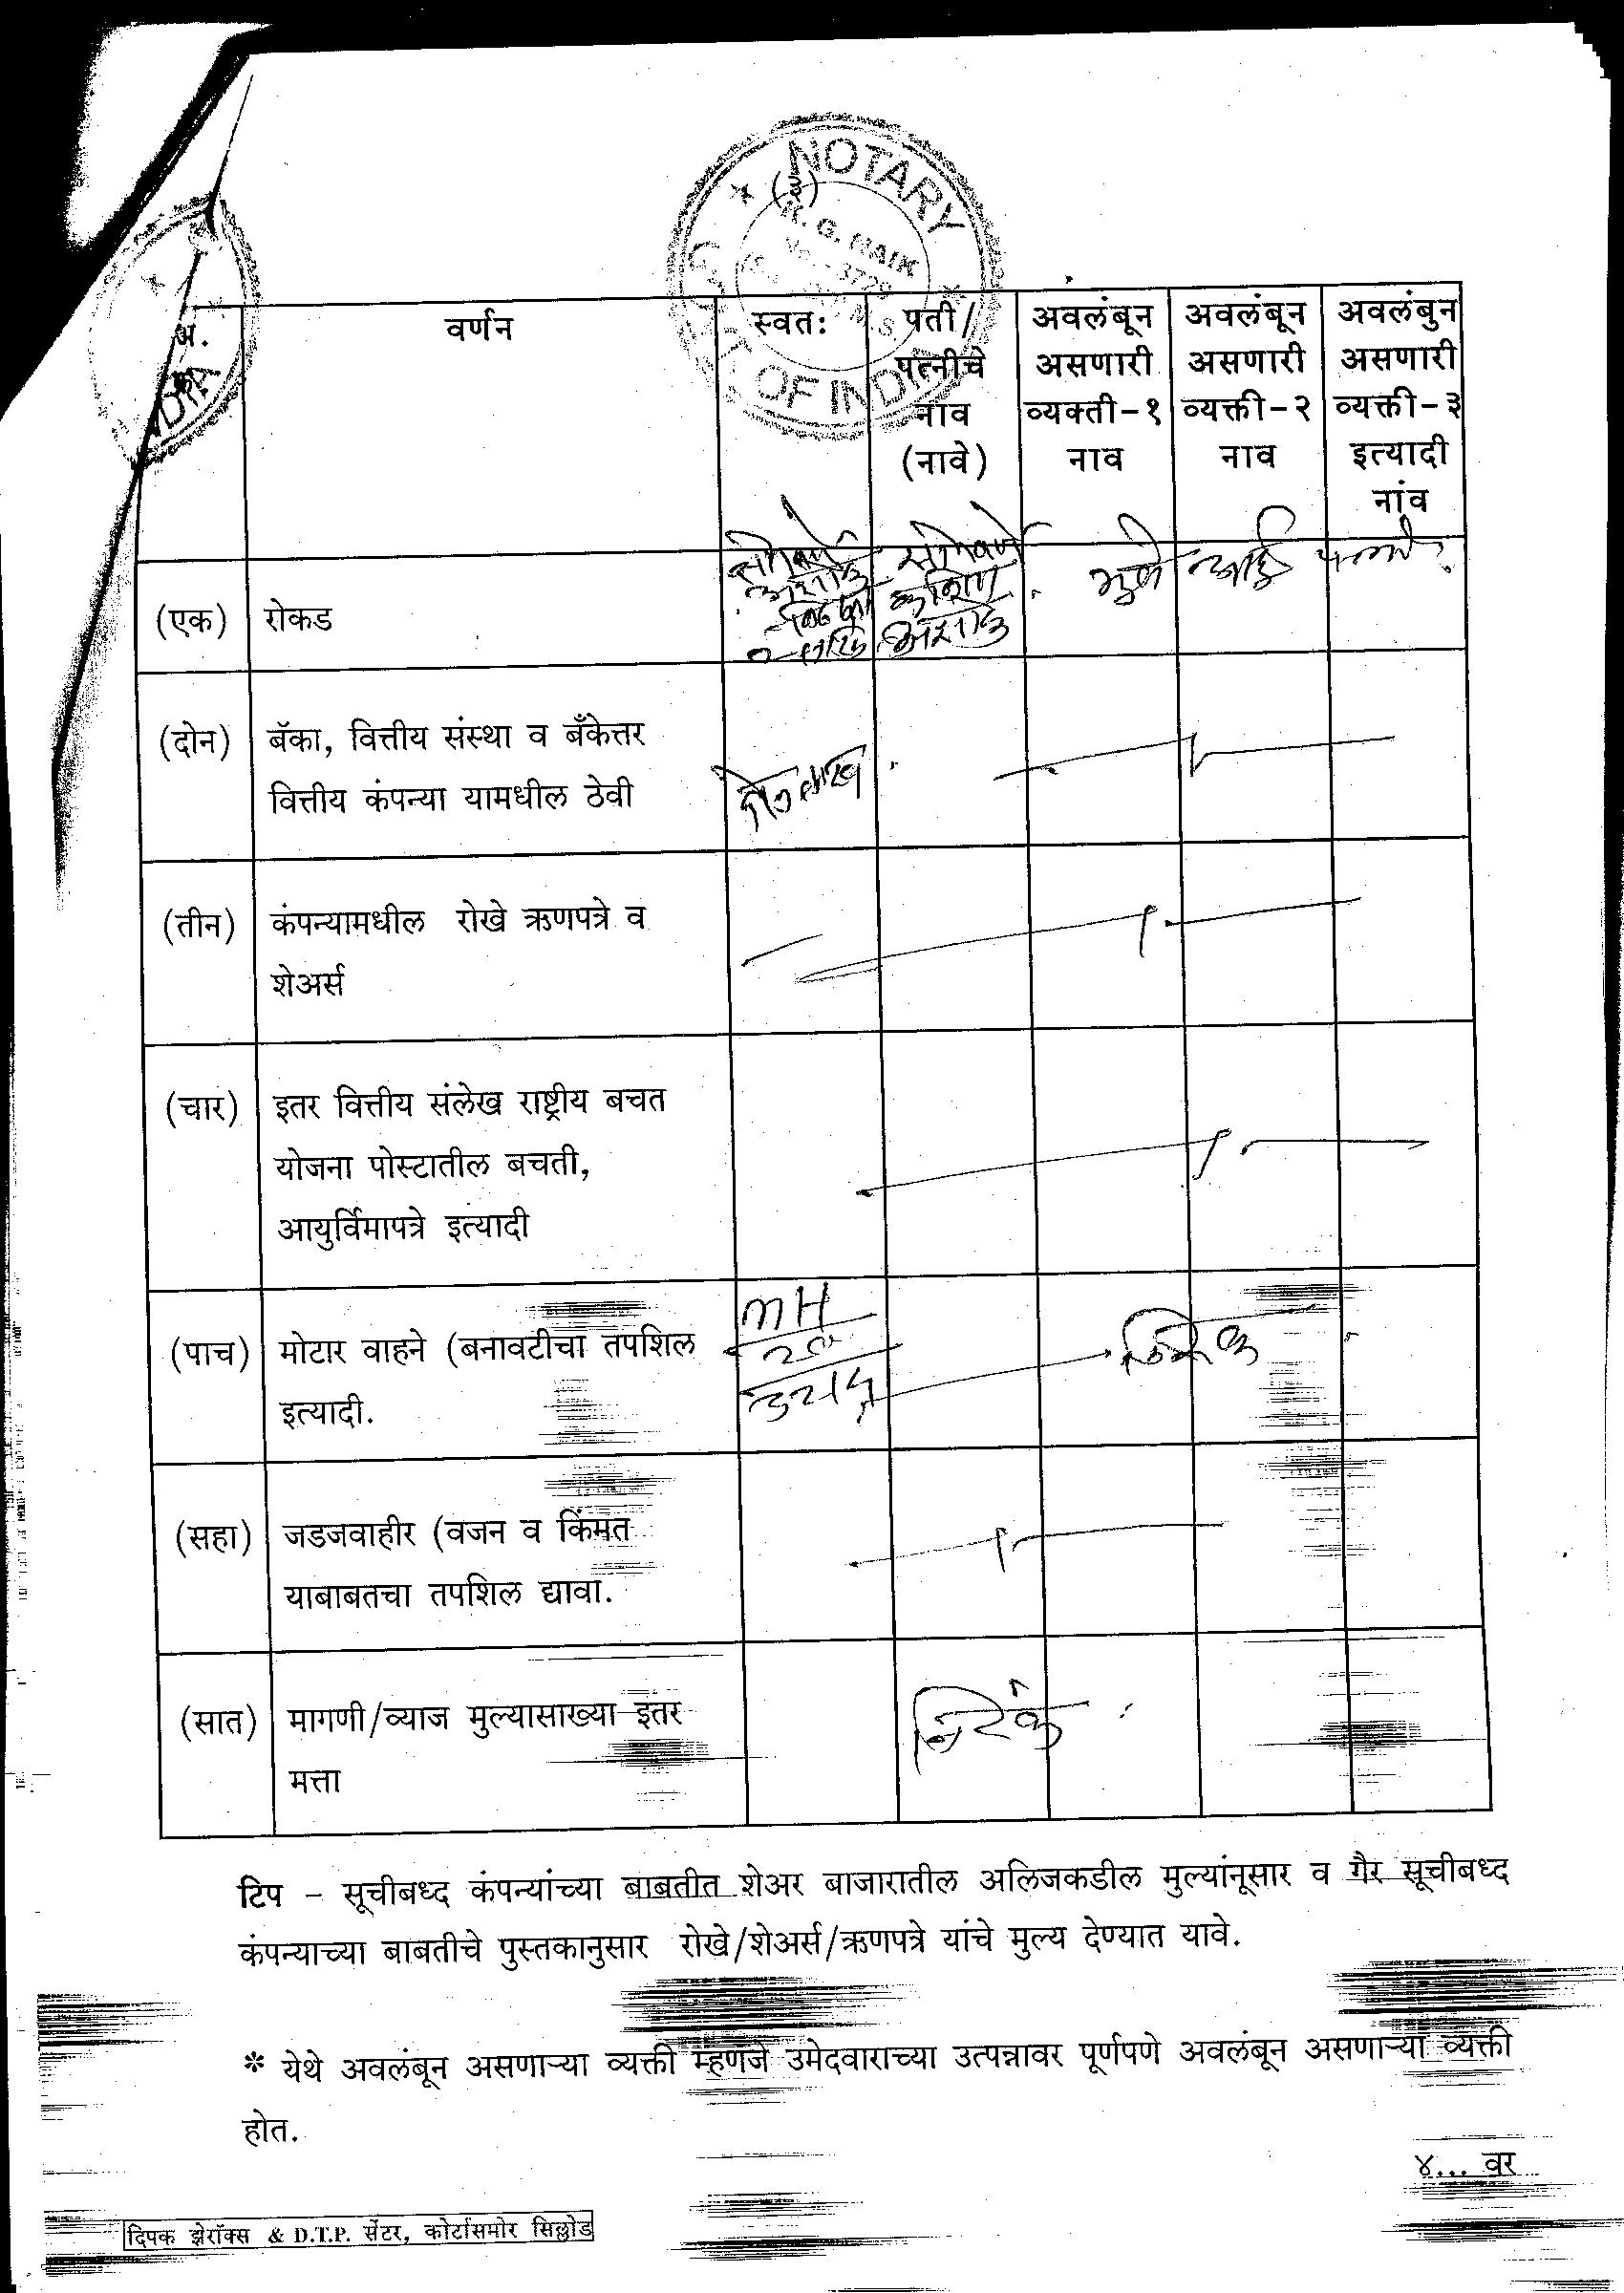 (३)
NOTARY
OF INDIA
अ. वर्णन स्वत: पती/ अवलंबून अवलंबून अवलंबुन
पत्नीचे असणारी असणारी असणारी
नाव व्यक्ती-१ व्यक्ती-२ व्यक्ती-३
(नावे) नाव नाव इत्यादी
नांव
(एक) रोकड
(दोन) बॅका, वित्तीय संस्था व बँकेत्तर
वित्तीय कंपन्या यामधील ठेवी
(तीन) कंपन्यामधील रोखे ऋणपत्रे व
शेअर्स
(चार) इतर वित्तीय संलेख राष्ट्रीय बचत
योजना पोस्टातील बचती,
आयुर्विमापत्रे इत्यादी
MH
(पाच) मोटार वाहने (बनावटीचा तपशिल
इत्यादी.
(सहा) जडजवाहीर (वजन व किंमत
याबाबतचा तपशिल द्यावा.
(सात) मागणी/व्याज मुल्यासाख्या इतर निरंक
मत्ता
टिप - सूचीबध्द कंपन्यांच्या बाबतीत शेअर बाजारातील अलिजकडील मुल्यांनूसार व गैर सूचीबध्द
कंपन्याच्या बाबतीचे पुस्तकानुसार रोखे/शेअर्स/ऋणपत्रे यांचे मुल्य देण्यात यावे.
* येथे अवलंबून असणाऱ्या व्यक्ती म्हणजे उमेदवाराच्या उत्पन्नावर पूर्णपणे अवलंबून असणाऱ्या व्यक्ती
होत.
४... वर
दिपक झेरॉक्स & D.T.P. सेंटर, कोर्टासमोर सिल्लोड